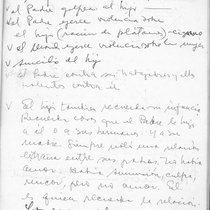 ✓ el Padre golpea al hijo
✓ el Padre ejerce violencia sobre
el hijo (racimo de plátanos) - cigarro
✓ el Marido ejerce violencia sobre la mujer
✓ suicidio del hijo
✓ el Padre contra sus trabajadores y los
violentos contra él
✓ El hijo también recuerda su infancia
Recuerda cosas que el Padre le hizo
a él o a sus hermanos. Y a su
madre. Siempre vió una relación
entre sus padres. No había
amor. Había sumisión, culpa,
rencor, pero no amor. El
es quien recuerda la relación